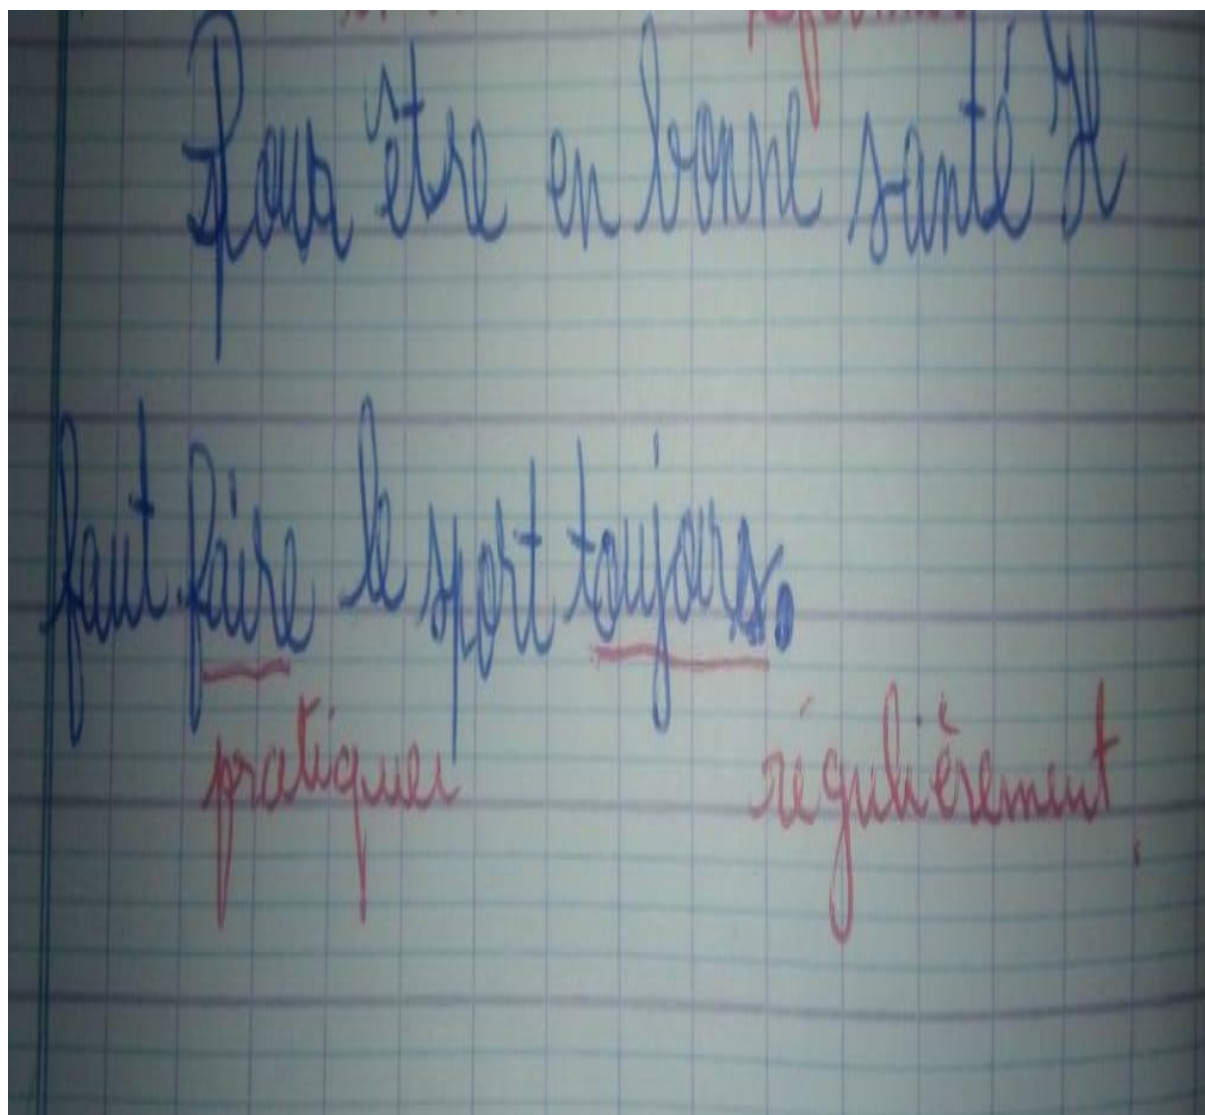 Pour être en bonne santé Il
faut faire le sport toujours.
pratiquer régulièrement.